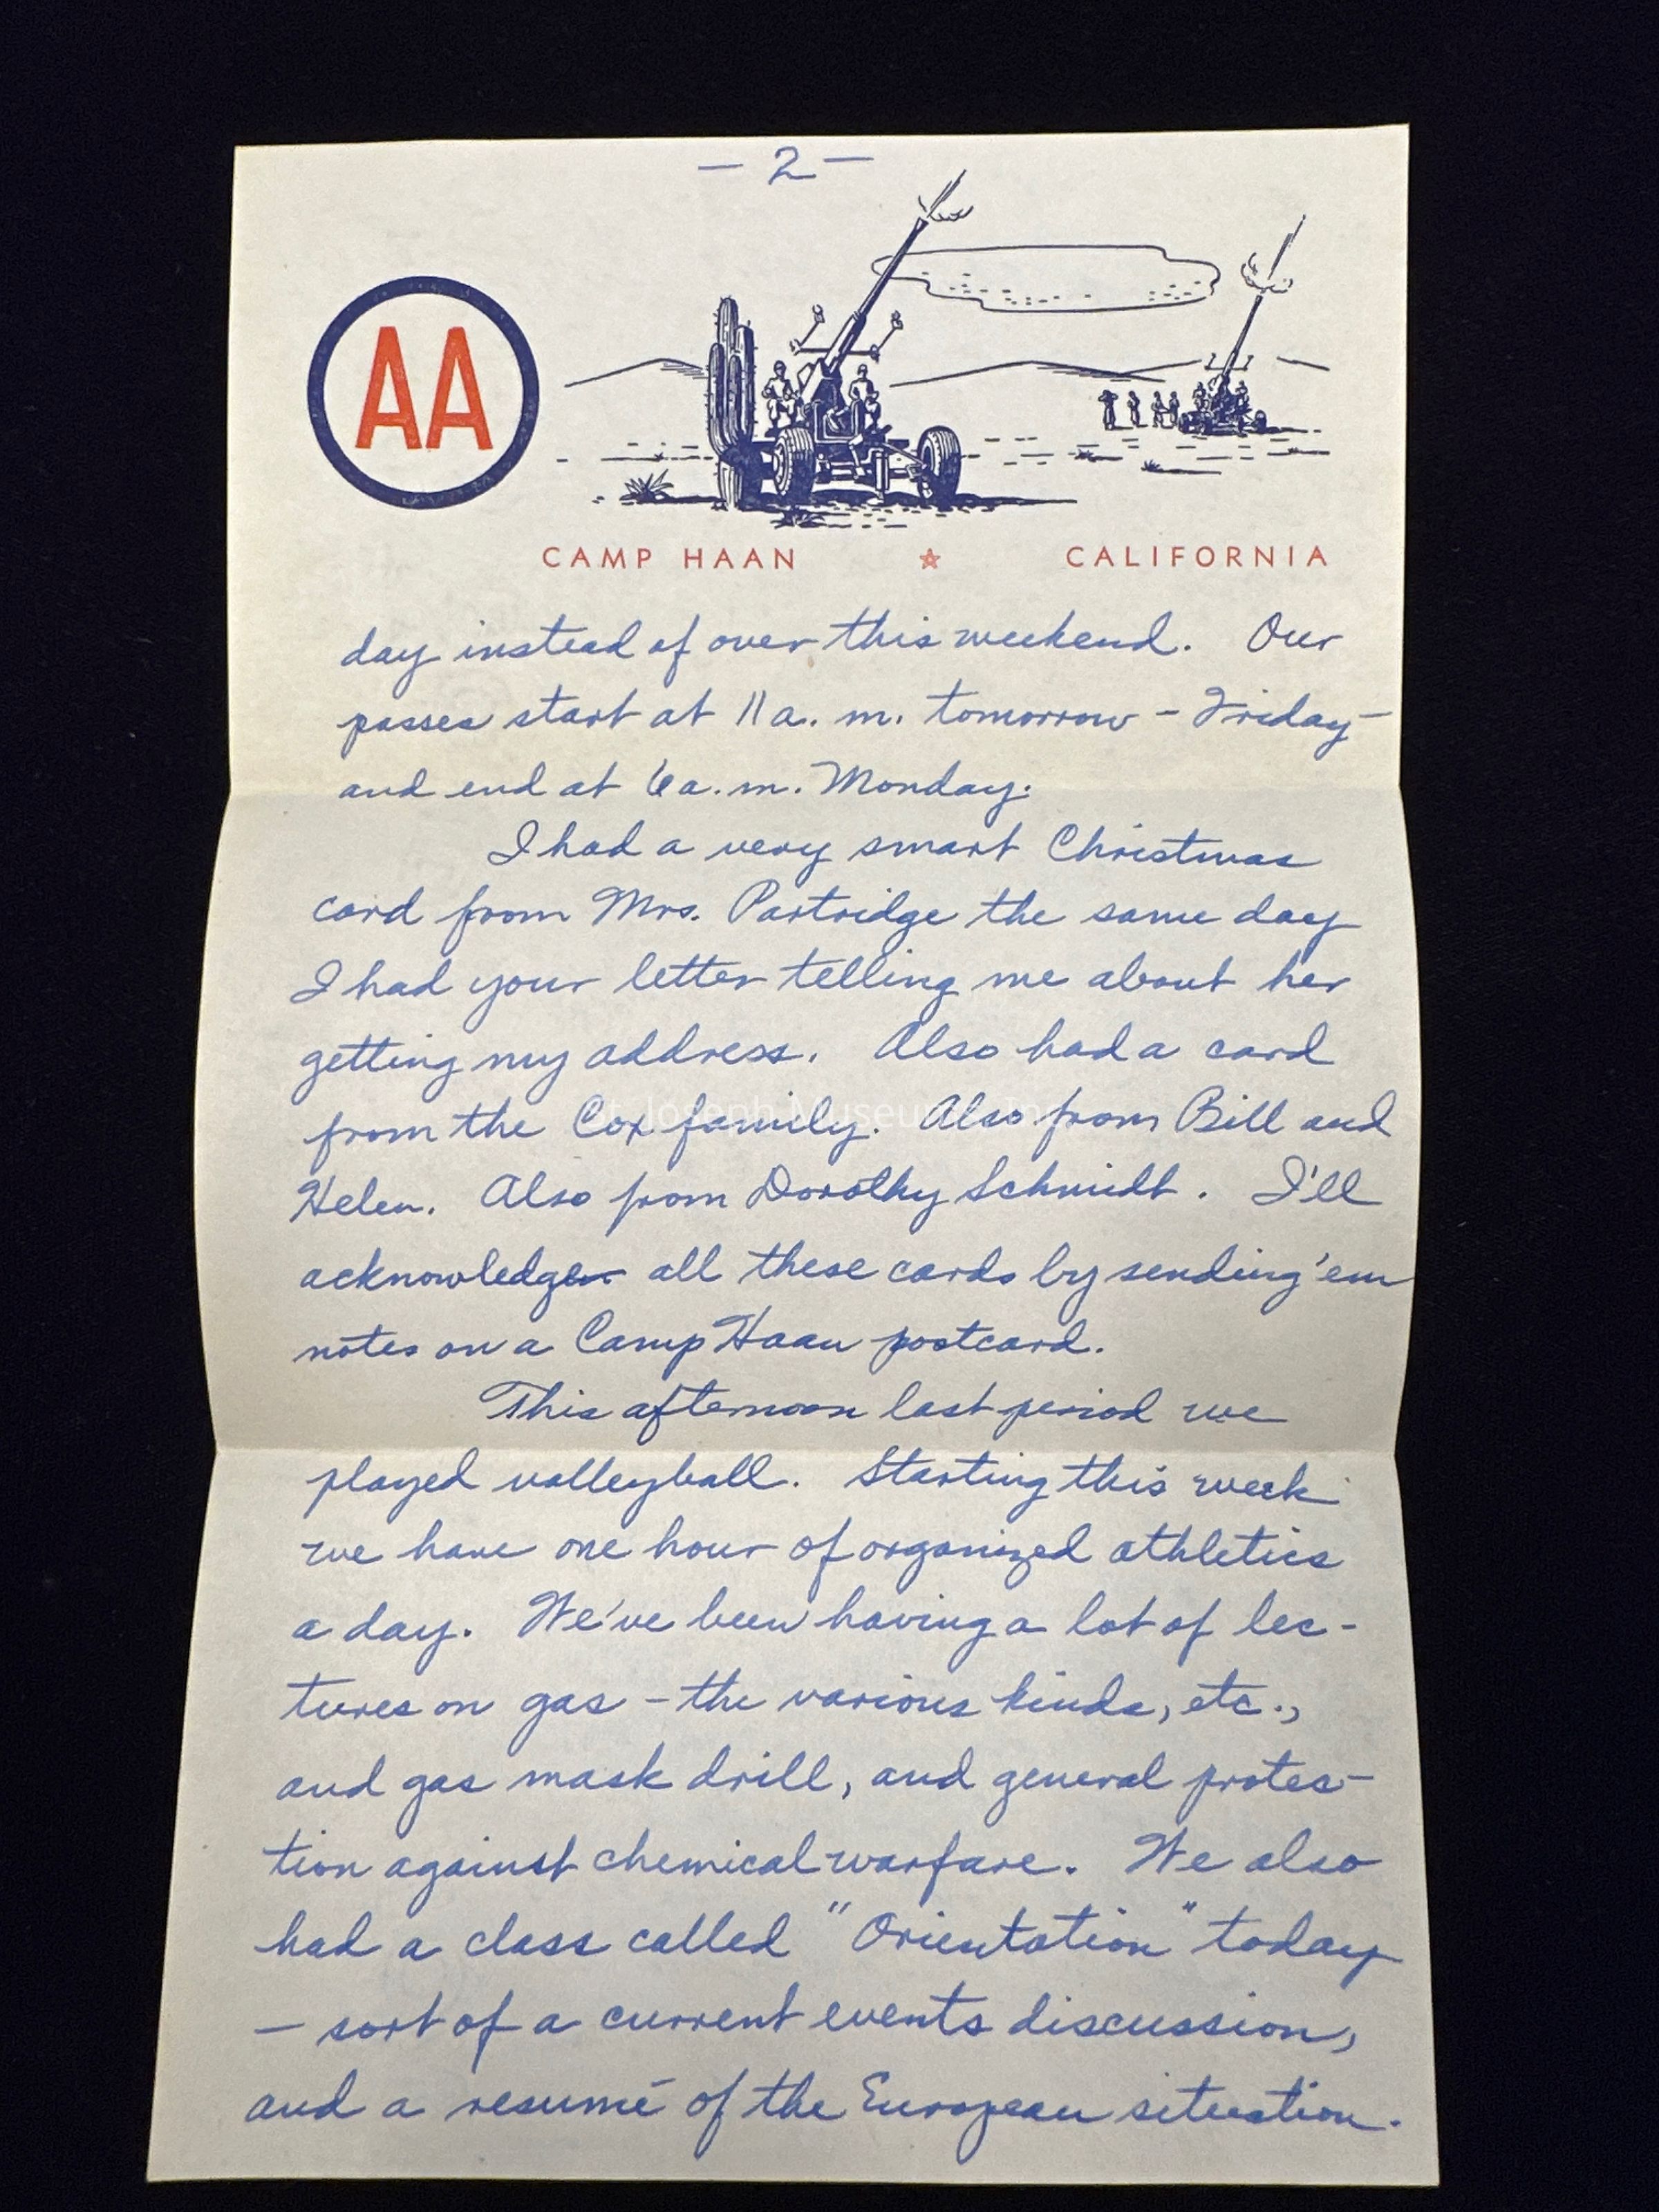 — 2 —
AA
CAMP HAAN ☆ CALIFORNIA
day instead of over this weekend. Our
passes start at 11 a. m. tomorrow – Friday –
and end at 6 a. m. Monday.
I had a very smart Christmas
card from Mrs. Partridge the same day
I had your letter telling me about her
getting my address. Also had a card
from the Cox family. Also from Bill and
St. Joseph Museums, Inc.
Helen. Also from Dorothy Schmidt. I'll
acknowledge all these cards by sending 'em
notes on a Camp Haan postcard.
This afternoon last period we
played volleyball. Starting this week
we have one hour of organized athletics
a day. We've been having a lot of lec-
tures on gas – the various kinds, etc.,
and gas mask drill, and general protec-
tion against chemical warfare. We also
had a class called "Orientation" today
— sort of a current events discussion,
and a resumé of the European situation.